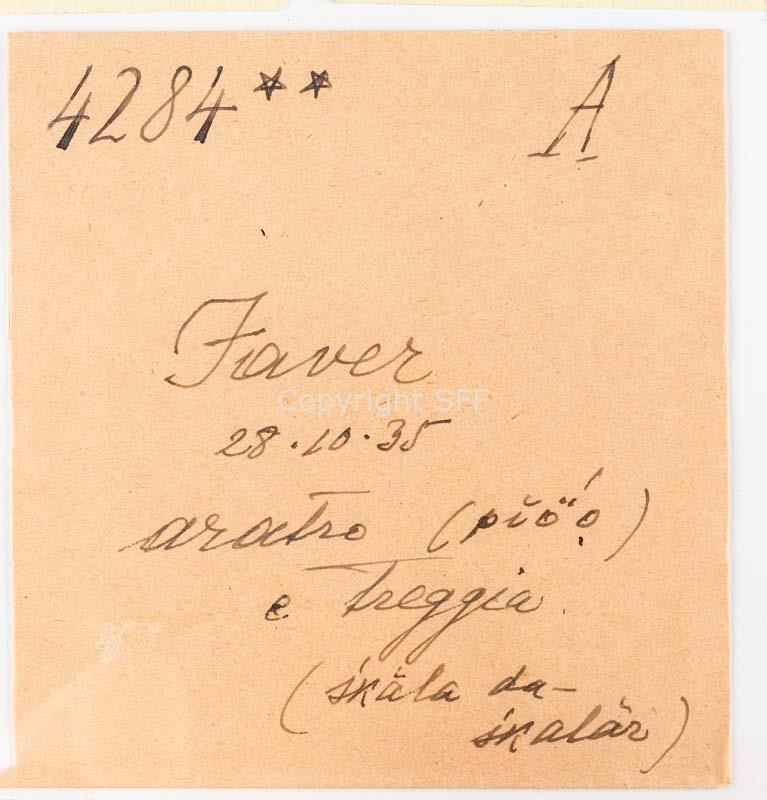 4284** A
Faver
Copyright SFF
28.10.35
aratro (
e treggia
(śkāla da-
śkalār)